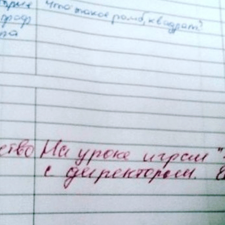 Что такое ромб, квадрат?
ство На уроке играл "
с директором.